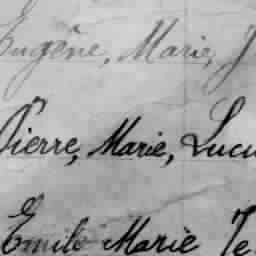 Eugène, Marie, J
Pierre, Marie, Luci
Emile Marie Je